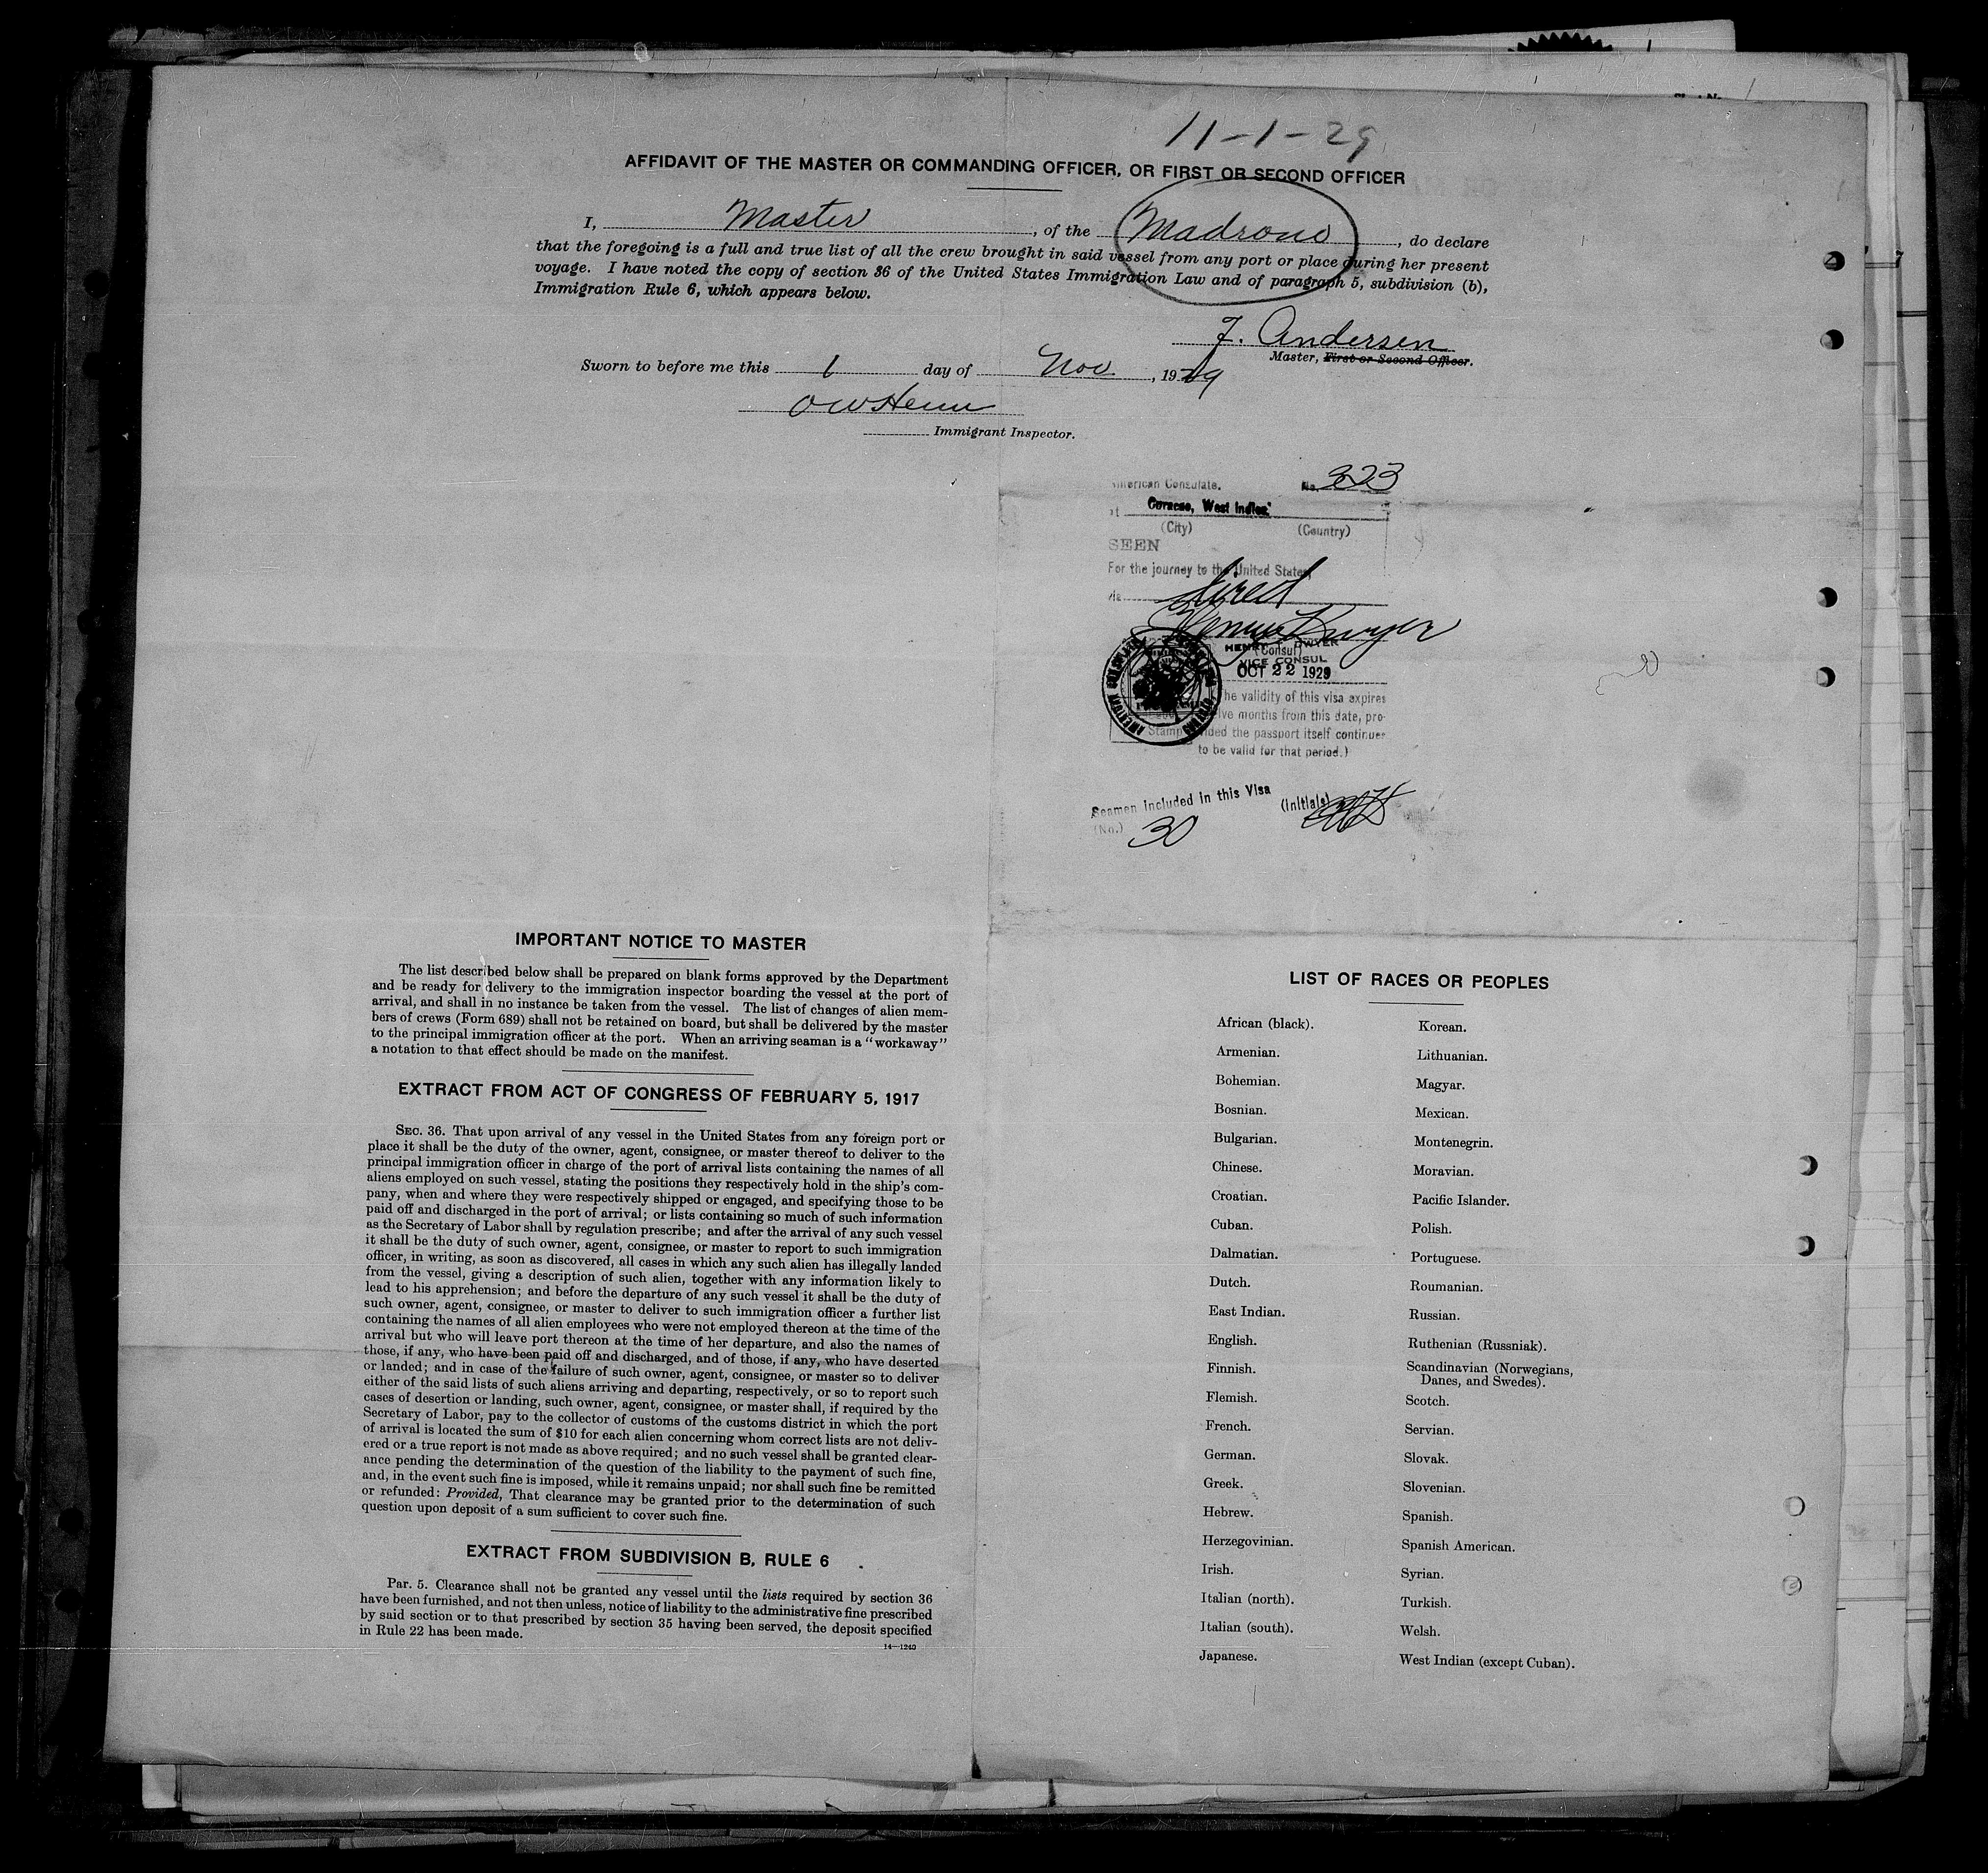 11-1-29
AFFIDAVIT OF THE MASTER OR COMMANDING OFFICER, OR FIRST OR SECOND OFFICER
I, Master, of the Madrono, do declare
that the foregoing is a full and true list of all the crew brought in said vessel from any port or place during her present
voyage. I have noted the copy of section 36 of the United States Immigration Law and of paragraph 5, subdivision (b),
Immigration Rule 6, which appears below.
F. Andersen
Master, First or Second Officer.
Sworn to before me this 1 day of Nov., 1929
Immigrant Inspector.
American Consulate. No. 323
at Curacao, West Indies.
(City) (Country)
SEEN
For the journey to the United States
via direct
Henry Dwyer
HENRY DWYER
(Consul)
VICE CONSUL
OCT 22 1929
The validity of this visa expires
twelve months from this date, pro-
Stamp vided the passport itself continues
to be valid for that period.)
Seamen included in this Visa (Initials)
(No.) 30
IMPORTANT NOTICE TO MASTER
The list described below shall be prepared on blank forms approved by the Department
and be ready for delivery to the immigration inspector boarding the vessel at the port of
arrival, and shall in no instance be taken from the vessel. The list of changes of alien mem-
bers of crews (Form 689) shall not be retained on board, but shall be delivered by the master
to the principal immigration officer at the port. When an arriving seaman is a "workaway"
a notation to that effect should be made on the manifest.
EXTRACT FROM ACT OF CONGRESS OF FEBRUARY 5, 1917
SEC. 36. That upon arrival of any vessel in the United States from any foreign port or
place it shall be the duty of the owner, agent, consignee, or master thereof to deliver to the
principal immigration officer in charge of the port of arrival lists containing the names of all
aliens employed on such vessel, stating the positions they respectively hold in the ship's com-
pany, when and where they were respectively shipped or engaged, and specifying those to be
paid off and discharged in the port of arrival; or lists containing so much of such information
as the Secretary of Labor shall by regulation prescribe; and after the arrival of any such vessel
it shall be the duty of such owner, agent, consignee, or master to report to such immigration
officer, in writing, as soon as discovered, all cases in which any such alien has illegally landed
from the vessel, giving a description of such alien, together with any information likely to
lead to his apprehension; and before the departure of any such vessel it shall be the duty of
such owner, agent, consignee, or master to deliver to such immigration officer a further list
containing the names of all alien employees who were not employed thereon at the time of the
arrival but who will leave port thereon at the time of her departure, and also the names of
those, if any, who have been paid off and discharged, and of those, if any, who have deserted
or landed; and in case of the failure of such owner, agent, consignee, or master so to deliver
either of the said lists of such aliens arriving and departing, respectively, or so to report such
cases of desertion or landing, such owner, agent, consignee, or master shall, if required by the
Secretary of Labor, pay to the collector of customs of the customs district in which the port
of arrival is located the sum of $10 for each alien concerning whom correct lists are not deliv-
ered or a true report is not made as above required; and no such vessel shall be granted clear-
ance pending the determination of the question of the liability to the payment of such fine,
and, in the event such fine is imposed, while it remains unpaid; nor shall such fine be remitted
or refunded: Provided, That clearance may be granted prior to the determination of such
question upon deposit of a sum sufficient to cover such fine.
EXTRACT FROM SUBDIVISION B, RULE 6
Par. 5. Clearance shall not be granted any vessel until the lists required by section 36
have been furnished, and not then unless, notice of liability to the administrative fine prescribed
by said section or to that prescribed by section 35 having been served, the deposit specified
in Rule 22 has been made.
14—1240
LIST OF RACES OR PEOPLES
African (black).
Armenian.
Bohemian.
Bosnian.
Bulgarian.
Chinese.
Croatian.
Cuban.
Dalmatian.
Dutch.
East Indian.
English.
Finnish.
Flemish.
French.
German.
Greek.
Hebrew.
Herzegovinian.
Irish.
Italian (north).
Italian (south).
Japanese.
Korean.
Lithuanian.
Magyar.
Mexican.
Montenegrin.
Moravian.
Pacific Islander.
Polish.
Portuguese.
Roumanian.
Russian.
Ruthenian (Russniak).
Scandinavian (Norwegians,
Danes, and Swedes).
Scotch.
Servian.
Slovak.
Slovenian.
Spanish.
Spanish American.
Syrian.
Turkish.
Welsh.
West Indian (except Cuban).